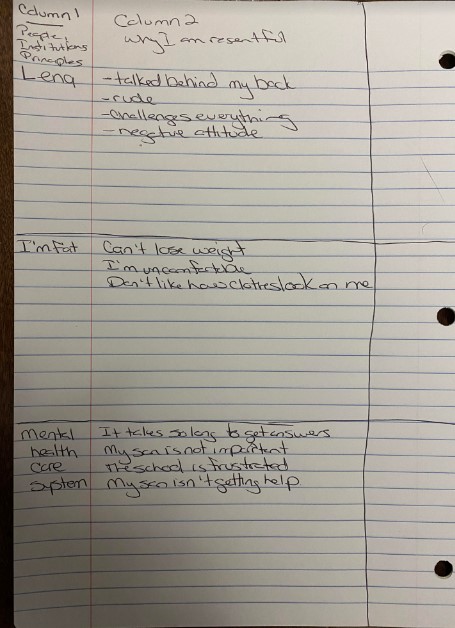 Column 1
People,
Institutions
Principles
Column 2
Why I am resentful
Lena
-talked behind my back
-rude
-challenges everything
-negative attitude
I'm fat
Can't lose weight
I'm uncomfortable
Don't like how clothes look on me
mental
health
care
system
It takes so long to get answers
My son is not important
The school is frustrated
My son isn't getting help